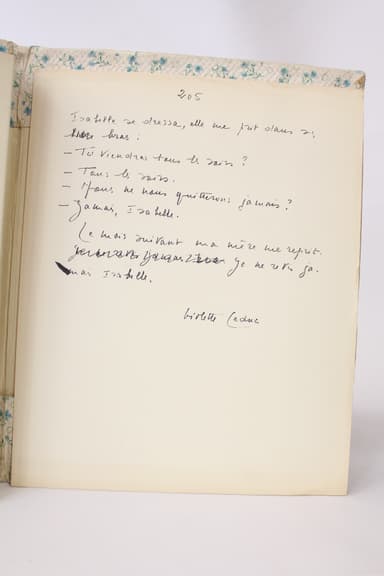 205
Isabelle se dressa, elle me prit dans ses
bras :
– Tu viendras tous les soirs ?
– Tous les soirs.
– Nous ne nous quitterons jamais ?
– Jamais, Isabelle.
Le mois suivant ma mère me reprit.
Je ne revis ja-
mais Isabelle.
Violette Leduc